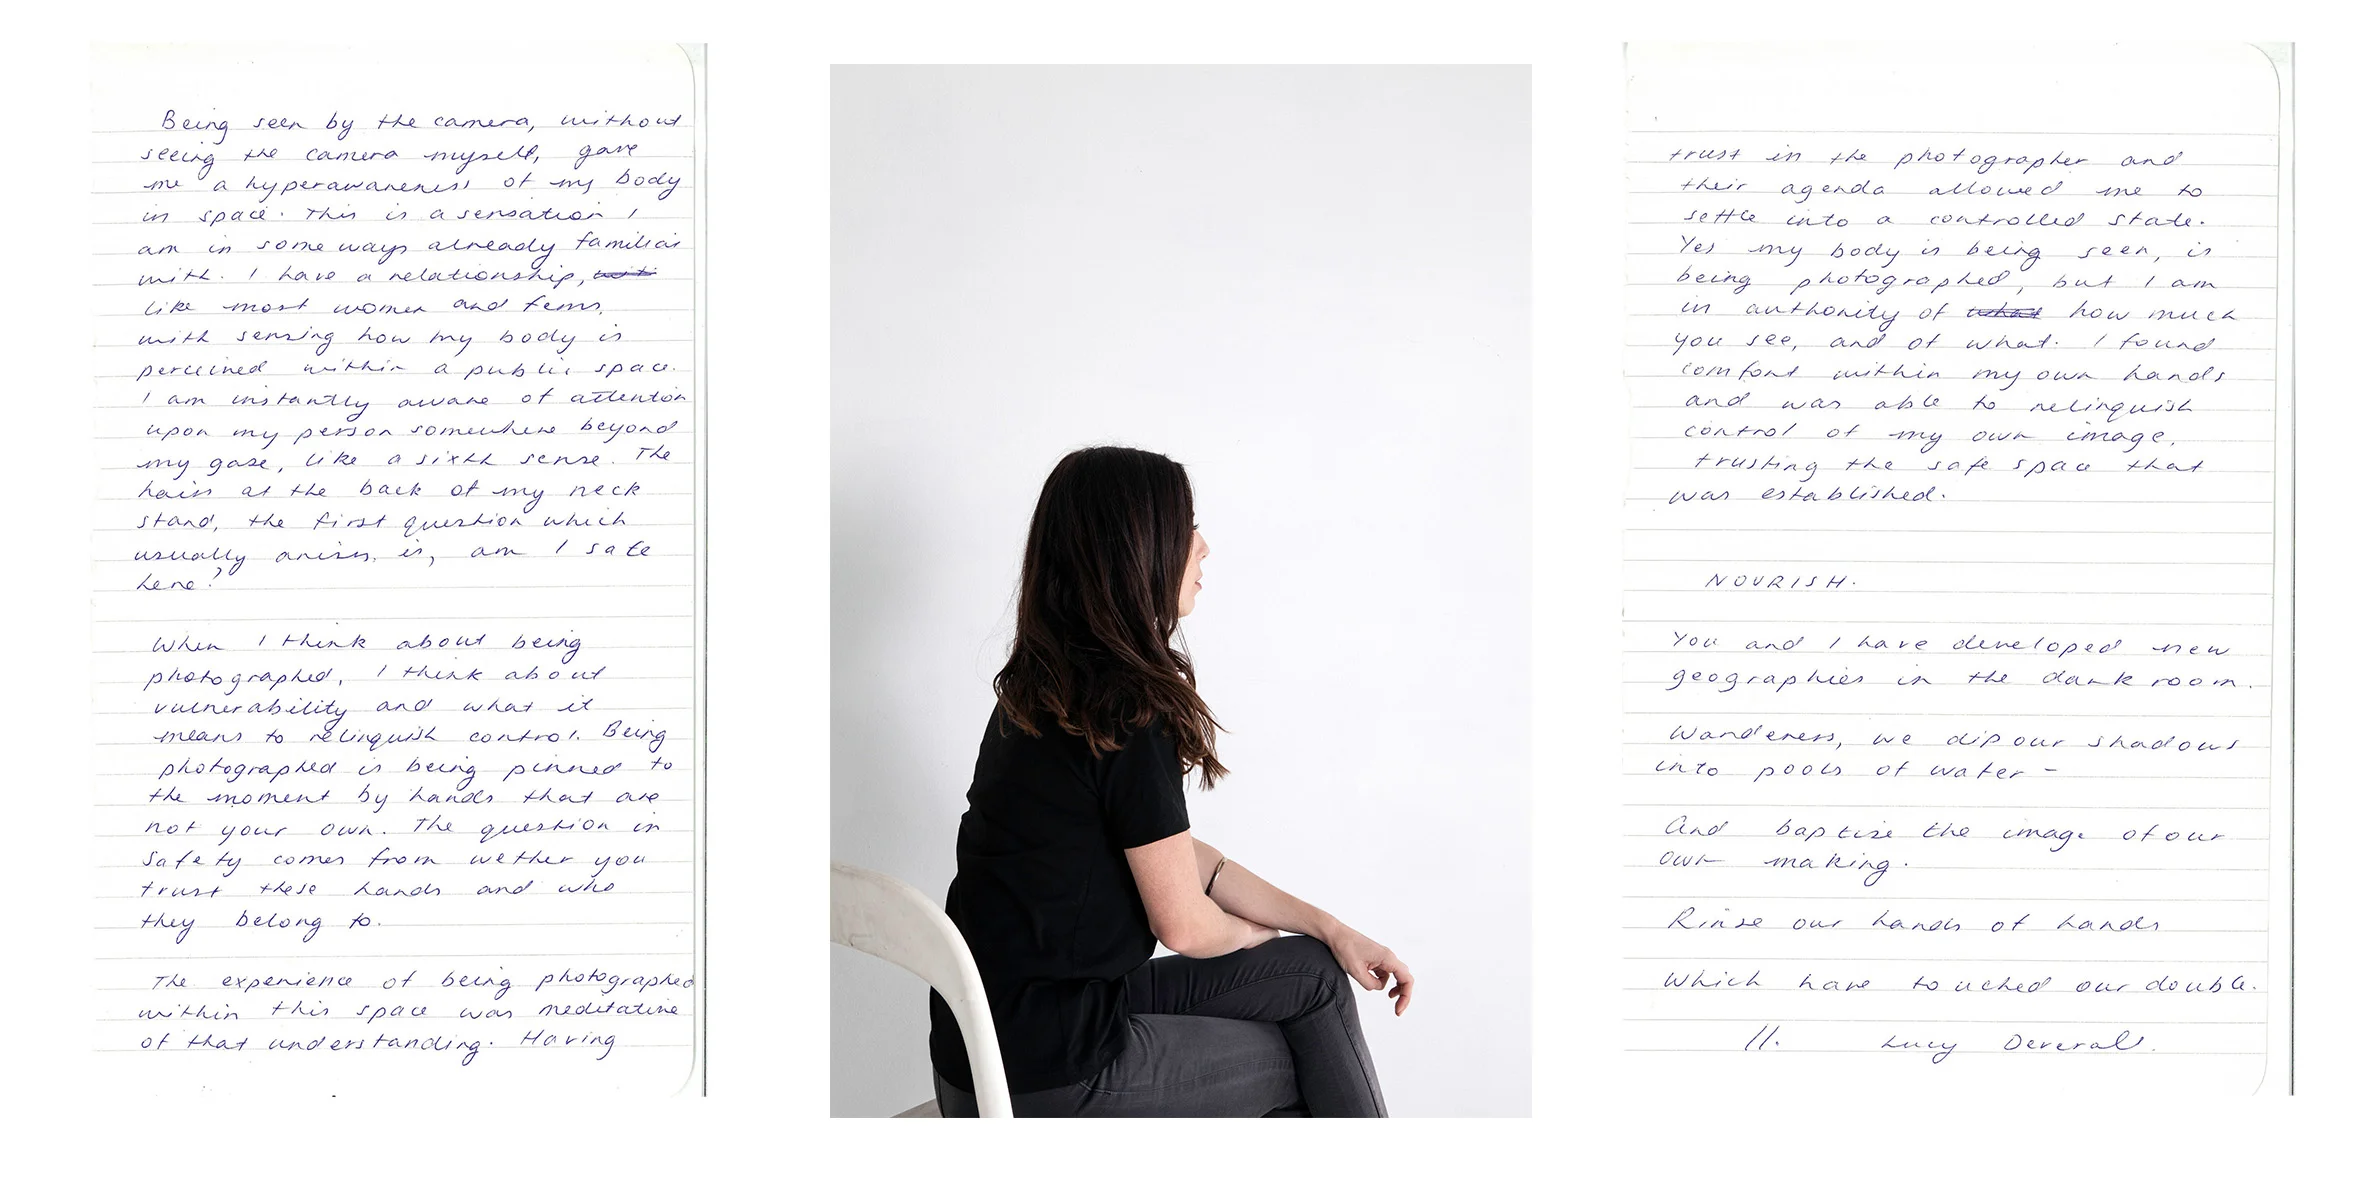 Being seen by the camera, without
seeing the camera myself, gave
me a hyperawareness of my body
in space. This is a sensation I
am in some ways already familiar
with. I have a relationship,
like most women and fems,
with sensing how my body is
perceived within a public space.
I am instantly aware of attention
upon my person somewhere beyond
my gaze, like a sixth sense. The
hairs at the back of my neck
stand, the first question which
usually arises, is, am I safe
here?
When I think about being
photographed, I think about
vulnerability and what it
means to relinquish control. Being
photographed is being pinned to
the moment by hands that are
not your own. The question in
safety comes from wether you
trust these hands and who
they belong to.
The experience of being photographed
within this space was meditative
of that understanding. Having
trust in the photographer and
their agenda allowed me to
settle into a controlled state.
Yes my body is being seen, is
being photographed, but I am
in authority of what how much
you see, and of what. I found
comfort within my own hands
and was able to relinquish
control of my own image,
trusting the safe space that
was established.
NOURISH.
You and I have developed new
geographies in the dark room.
Wanderers, we dip our shadows
into pools of water -
And baptise the image of our
own making.
Rinse our hands of hands
Which have touched our double.
//. Lucy Deverall.